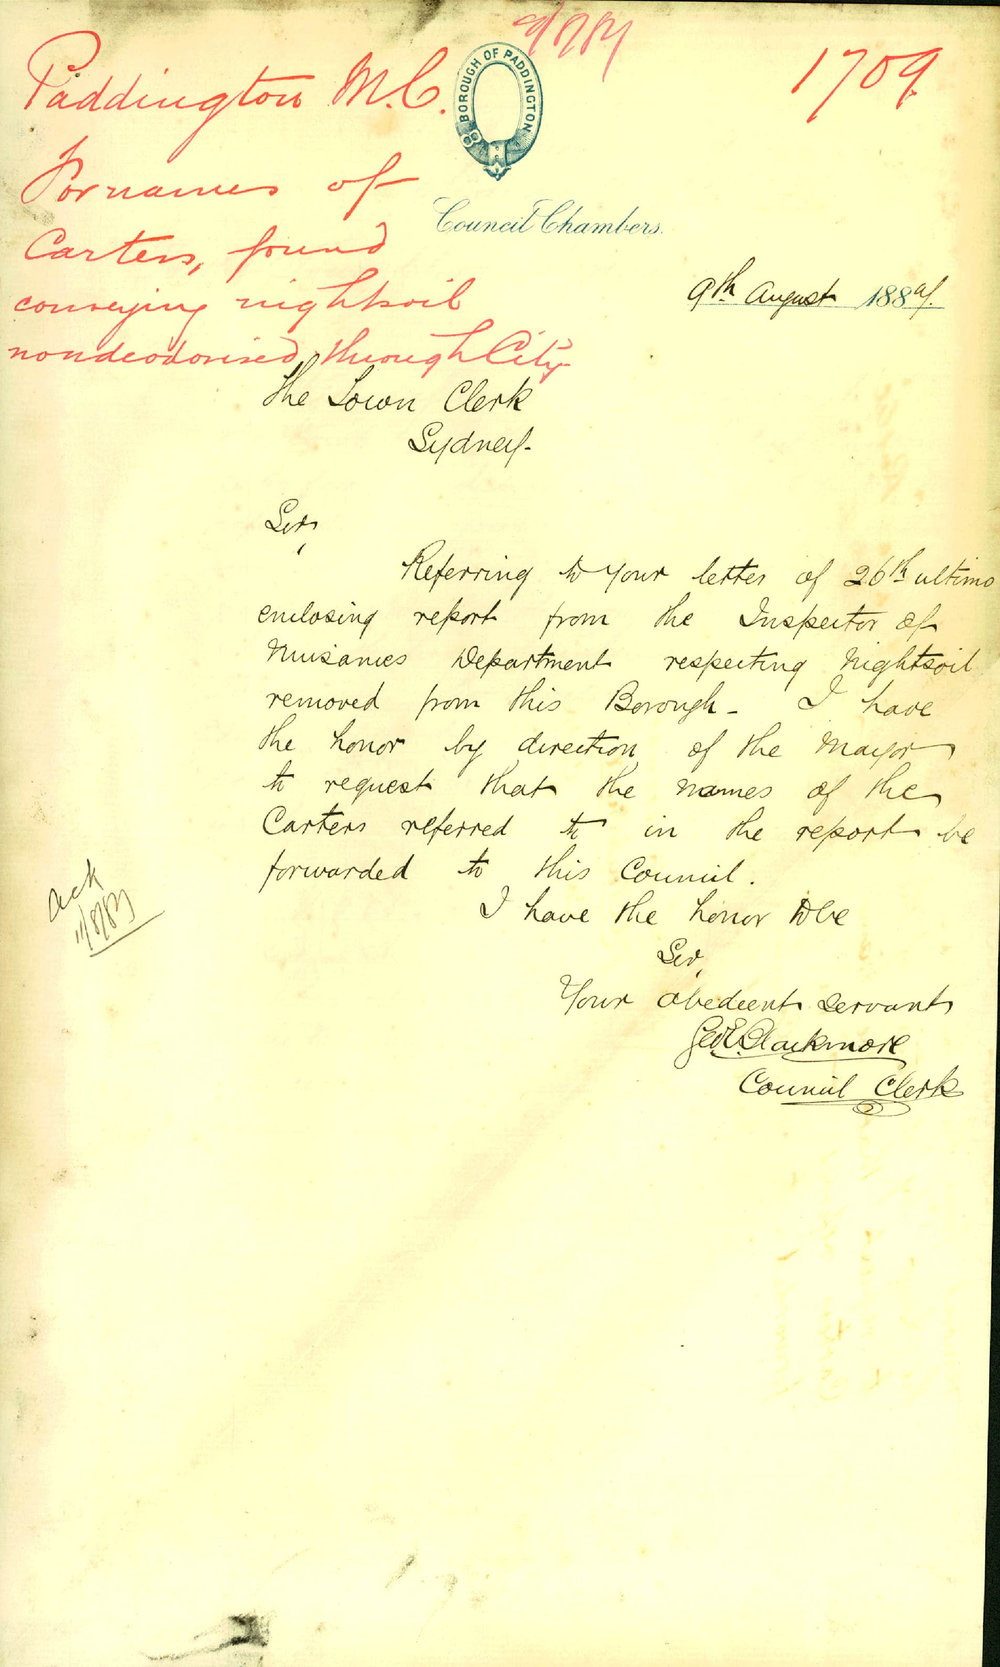 Paddington M.C.
For names of
Carters, found
conveying nightsoil
nondeodorised through City
1709.
BOROUGH OF PADDINGTON
Council Chambers.
9th August 1889.
The Town Clerk
Sydney.
Sir,
Referring to Your letter of 26th ultimo
enclosing report from the Inspector of
Nuisances Department respecting Nightsoil
removed from this Borough - I have
the honor by direction of the Mayor
to request that the names of the
Carters referred to in the report be
forwarded to this Council.
I have the honor to be
Sir,
Your obedient servant
Geo E. Blackmore
Council Clerk
Ack
11/8/89